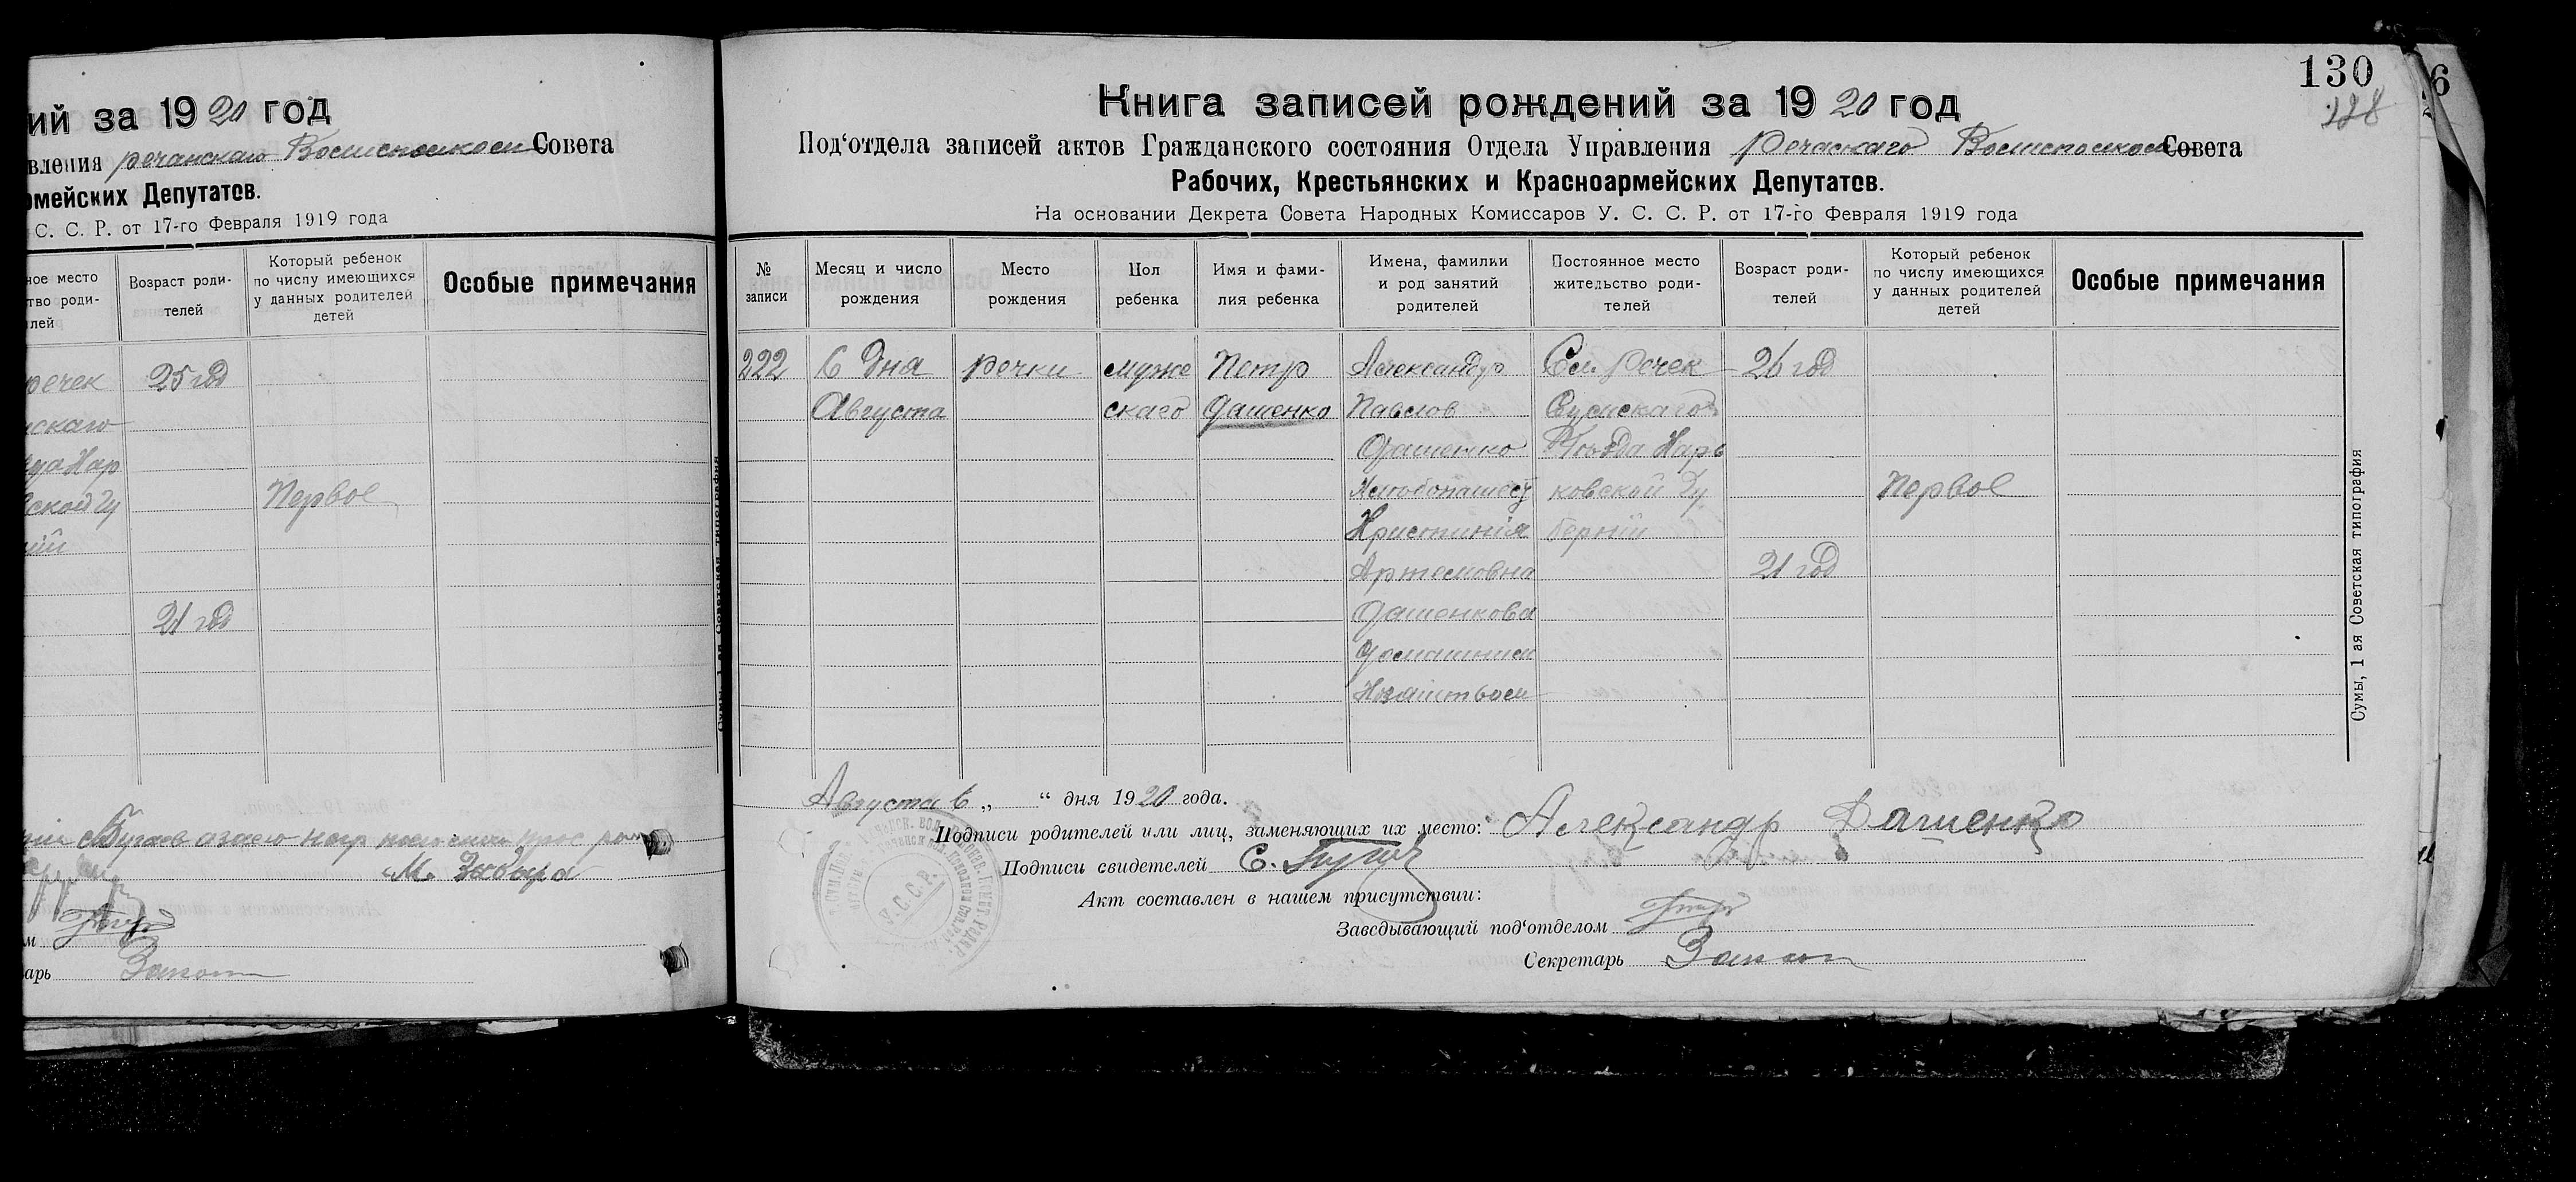 ий за 1920 год
вления речанскаго Волисполкома Совета
рмейских Депутатов.
С. С. Р. от 17-го Февраля 1919 года
ное место
тво роди-
лей
Возраст роди-
телей
Который ребенок
по числу имеющихся
у данных родителей
детей
Особые примечания
речек 25 год
скаго
зда Нар
ской гу Первое
нии
21 год
М. Знобыра
арь
130
228
Книга записей рождений за 1920 год
Под‘отдела записей актов Гражданского состояния Отдела Управления Речаскаго Волисполкома Совета
Рабочих, Крестьянских и Красноармейских Депутатов.
На основании Декрета Совета Народных Комиссаров У. С. С. Р. от 17-го Февраля 1919 года
№
записи
Месяц и число
рождения
Место
рождения
Пол
ребенка
Имя и фами-
лия ребенка
Имена, фамилии
и род занятий
родителей
Постоянное место
жительство роди-
телей
Возраст роди-
телей
Который ребенок
по числу имеющихся
у данных родителей
детей
Особые примечания
222 6 дня речки муже Петр Александр Сл. Речек 26 год
Августа скаго Дашенко Павлов Сумскаго
Дашенко Уезда Харь
Хлебопашест ковской Гу Первое
Христиния берний
Артемовна 21 год
Дашенкова
Домашним
Хозяйством
Августа 6 „ “ дня 1920 года.
Подписи родителей или лиц, заменяющих их место: Александр Дашенко
Подписи свидетелей С.
Акт составлен в нашем присутствии:
Заведывающий под‘отделом
Секретарь
У.С.С.Р.
Сумы, 1 ая Советская типография